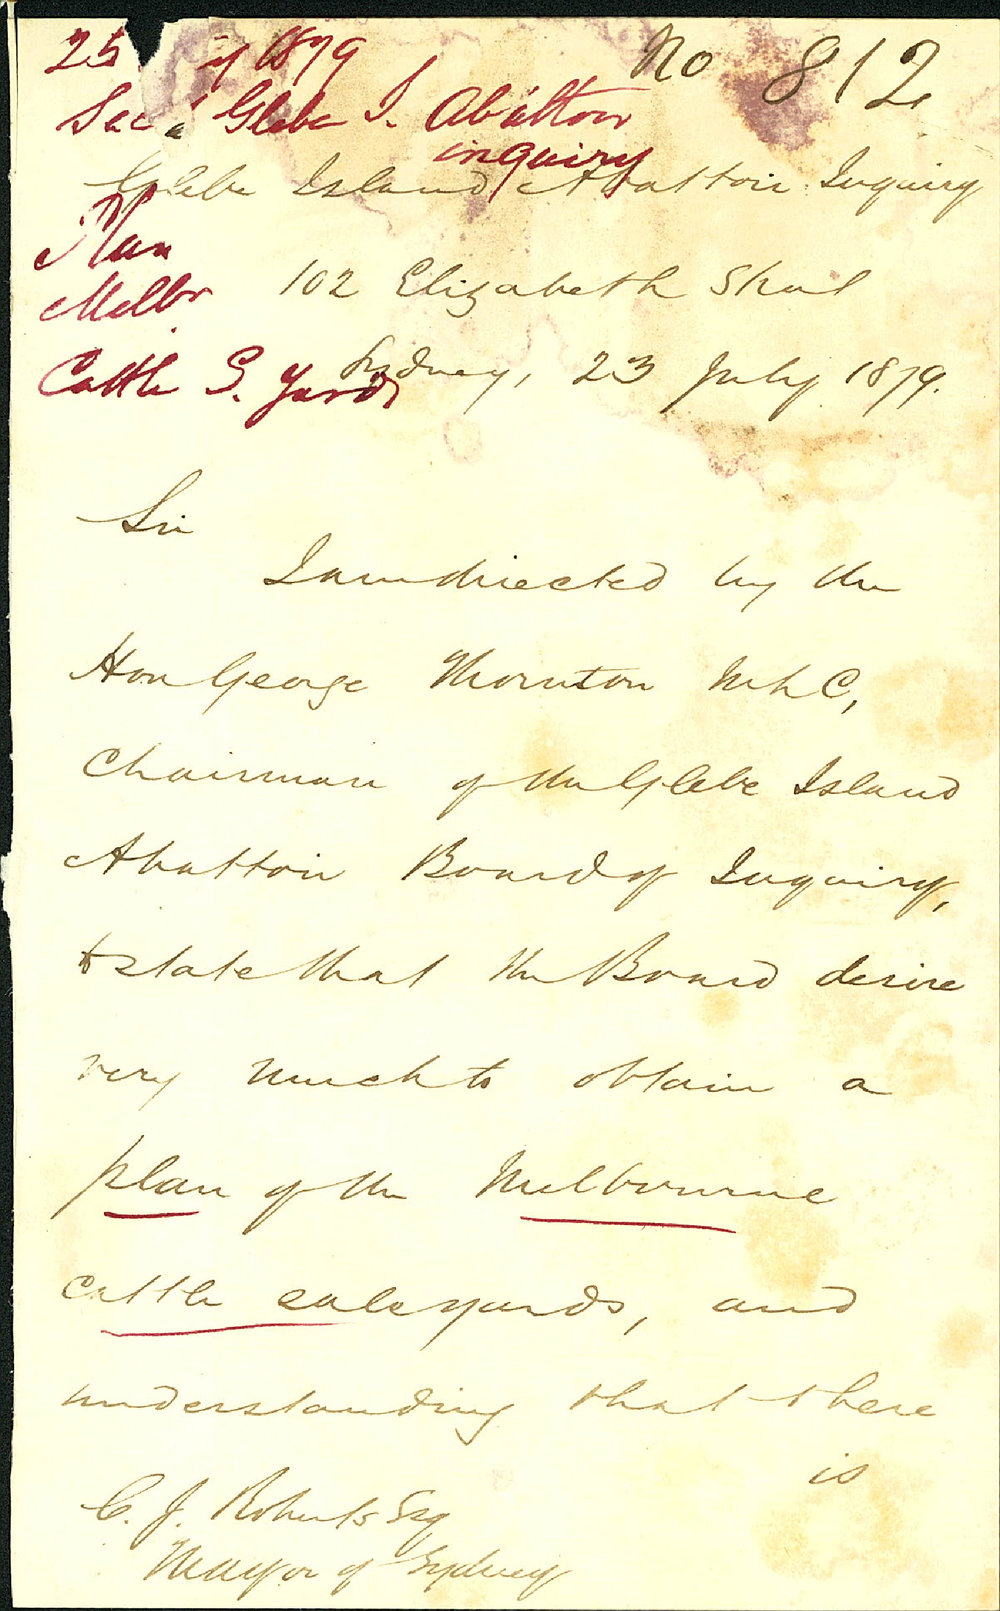 25 y 1879
No 812
Sec Glebe I. Abattoir
inquiry
Glebe Island Abattoir Inquiry
Plan
Melbr
Cattle S. Yards
102 Elizabeth Street
Sydney, 23 July 1879.
Sir
I am directed by the
Hon George Thornton MLC,
Chairman of the Glebe Island
Abattoir Board of Inquiry,
to state that the Board desire
very much to obtain a
plan of the Melbourne
cattle saleyards, and
understanding that there
is
C. J. Roberts Esq
Mayor of Sydney